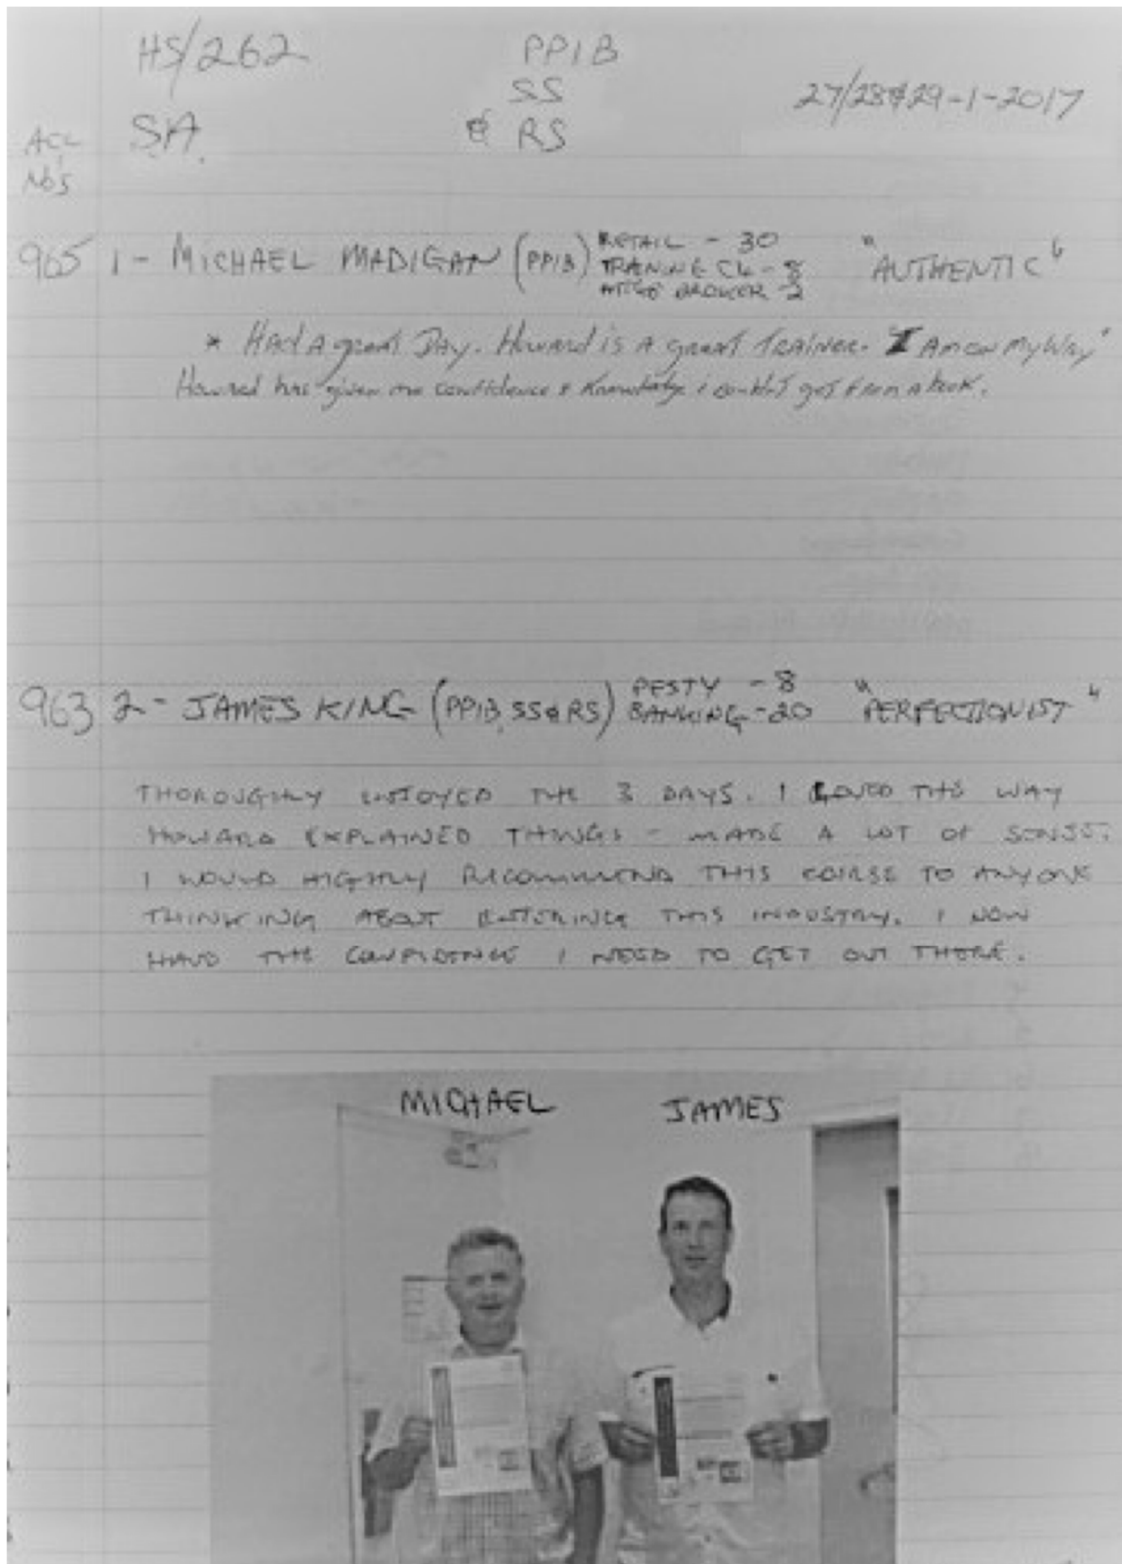 HS/262 PPIB
SS 27/28&29-1-2017
ACC S.A. & RS
NoS
965 1- MICHAEL MADIGAN (PPIB) RETAIL - 30 "AUTHENTIC"
TRAINING CL - 8
MTGE BROKER - 2
* Had A great Day. Howard is A great TRAINER. "I Am on My Way"
Howard has given me confidence & Knowledge i couldn't get from a book.
963 2- JAMES KING (PPIB, SS & RS) PESTY - 8 "PERFECTIONIST"
BANKING - 20
THOROUGHLY ENJOYED THE 3 DAYS. I LOVED THE WAY
HOWARD EXPLAINED THINGS - MADE A LOT OF SENSE.
I WOULD HIGHLY RECOMMEND THIS COURSE TO ANYONE
THINKING ABOUT ENTERING THIS INDUSTRY. I NOW
HAVE THE CONFIDENCE I NEED TO GET OUT THERE.
MICHAEL JAMES